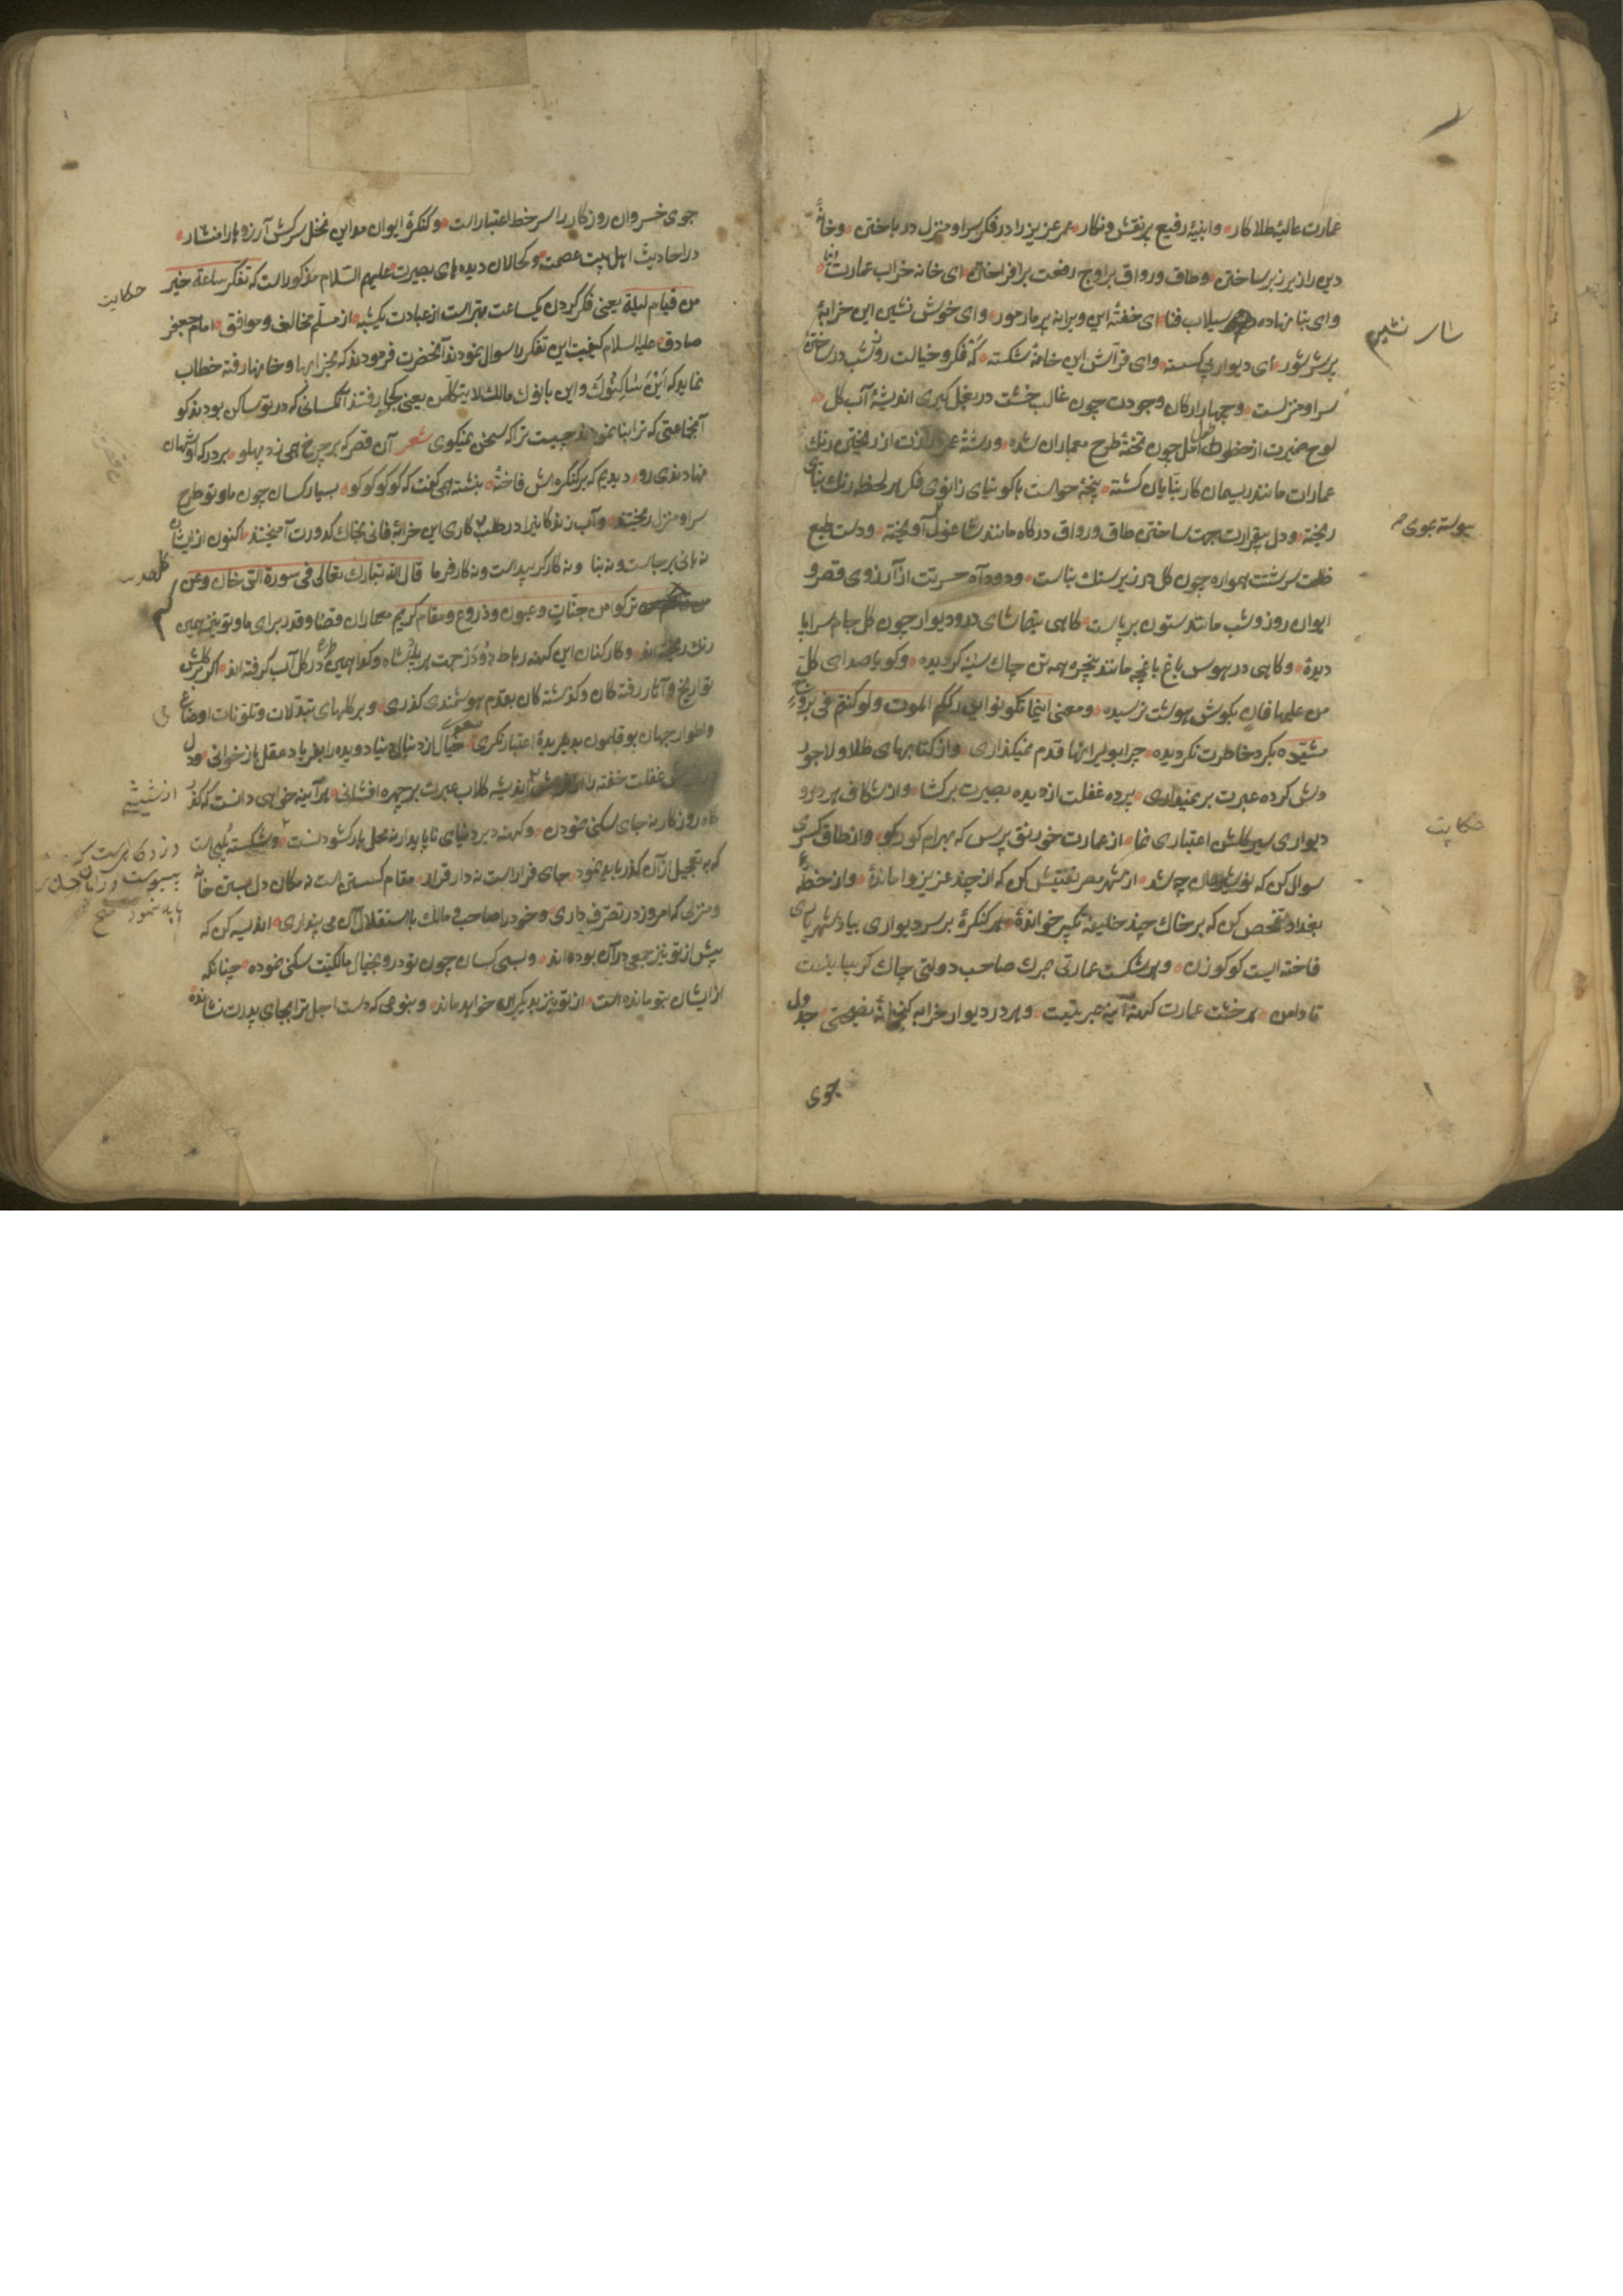 عمارت عالیهٔ طلاکار و ابنیهٔ رفیع پرنقش و نکار عمر عزیز را در فکر سرا و منزل در باختن و خانهٔ
دین را زیر زبر ساختن و طاق و رواق بر اوج رفعت برافراختن ای خانه خراب عمارت
و ای بنا نهاده سیلاب فنا ای خفتهٔ این ویرانه پر مار مور و ای خوش نشین این خرابهٔ
پر شر شور ای دیوار پی کسسته و ای فرّاش این خامهٔ شکسته که فکر و خیالت روز شب در ساختن
سرا و منزلست و چهار ارکان وجودت چون غالب خشت در بغل کیری اندیشهٔ آب کل
لوح ضمیرت از خطوط طول امل چون تختهٔ طرح معماران شده و رشتهٔ از ریختن رنك
عمارات مانند ریسمان کار بنّایان کشته پنجهٔ حواست با کونیای زانوی فکر هر لحظه رنك بنای
ریخته و دل بیقرارت جهت ساختن طاق و رواق درکاه مانند شاغول آویخته و دست طبع
ظلمت سرشتت همواره چون کل در زیر سنك بناست و دود آه حسرتت از آرزوی قصر و
ایوان روز و شب مانند ستون برپاست کاهی بتماشای در و دیوار چون کل جام سراپا
دیدهٔ و کاهی در هوس باغ باغچه مانند پنجره همه تن چاك سینه کردیده و کویا صدای کلّ
من علیها فان بکوش هوشت نرسیده و معنی اینما تکونوا یدرککم الموت ولو کنتم فی بروج
مشیّده بکرد خاطرت نکردیده چرا بویرانها قدم نمیکذاری و از کتابهای طلا و لاجورد
دلش کرده عبرت بر نمیداری پرده غفلت از دیده بصیرت برکشا و از شکاف هر در و
دیواری سیر کلش اعتباری نما از عمارت خورنق پرس که بهرام کور کو و از طاق کسری
سوال کن که نوشیروان چه شد از شهر مصر تفتیش کن که از چند عزیز وا ماندهٔ و از خطهٔ
بغداد تفحص کن که بر خاك چند خلیفه تکبیر خواندهٔ هر کنکرهٔ بر سر دیواری بیاد شهریاری
فاخته ایست کوکو زن و هر شکست عمارتی مرك صاحب دولتی چاك کریبا نیست
تا دامن هر خشت عمارت کهنه آینه عبرتیست و هر در دیوار خرابه کتیبهٔ نصیحتی جدول
جوی
سار نشیم
پیوسته بوی
حکایت
جوی خسروان روزکار را سر خط اعتبار است و کنکرهٔ ایوان مداین نخل سرکش آرزوها را منشار
در احادیث اهل بیت عصمت و کحالان دیده های بصیرت علیهم السّلام مذکور است که تفکر ساعة خیر
من قیام لیلة یعنی فکر کردن یکساعت بهتر است از عبادت یکشبه از مسلّم مخالف و موافق امام جعفر
صادق علیه السلام کیفیت این تفکر را سوال نمودند آنحضرت فرمودند که بخرابها و خانها رفته خطاب
نماید که این ساکنوك و این بانوك مالك لا یتکلّمن یعنی بکجا رفتند آنکسانی که در تو ساکن بودند کو
آنجماعتی که ترا بنا نمودند چیست ترا که سخن نمیکوی شعر آن قصر که بر چرخ همی زد پهلو بر درکه او شهان
نهادندی رو دیدیم که بر کنکره اش فاختهٔ بنشسته همی کفت که کوکوکوکو بسیار کسان چون ما و تو طرح
سرا و منزل ریختند و آب زندکانیرا در طلب کاری این خرابهٔ فانی بخاك کدورت آمیختند اکنون از ایشان
نه بانی برجاست و نه بنا و نه کارکر پیداست و نه کارفرما قال اللّه تبارك تعالی فی سورة الدخان و عن
ترکوا من جنّات و عیون و ذروع و مقام کریم معماران قضا و قدر برای ما و تو نیز همین
رنك ریخته اند و کارکنان این کهنه رباط دو در جهت هر یك شاه و کدا همین طرح در کل آب کرفته اند اکر کلش
تواریخ و آثار رفته کان و کذشته کان بقدم هوشمندی کذری و بر کلهای تبدّلات و تلوّنات اوضاع
و اطوار جهان بوقلمون بدیدهٔ اعتبار نکری خیال از دنبال دنیا دویده را بفریاد عقل باز خوانی و دل
غفلت خفته را اندیشه کلاب عبرت بر چهره افشانی هر آینه خواهی دانست که کذر
کاه روزکار نه جای سکنی نمودن و کهنه دیر دنیای ناپایدار نه محل بار کشود نست و شکسته پلی است
که به تعجیل از آن کذر باید نمود جای فرار است نه دار قرار مقام کسستن است نه مکان دل بستن خانهٔ
و منزلی که امروز در تصرّف داری و خود را صاحب و مالك باستقلال آن می پنداری اندیشه کن که
پیش از تو نیز جمعی در آن بوده اند و بسی کسان چون تو در و بخیال مالکیّت سکنی نموده چنانکه
از ایشان بتو مانده است از تو نیز بدیکران خواهد ماند و بنوعی که دست اجل ترا بجای پدرت نشانده
حکایت